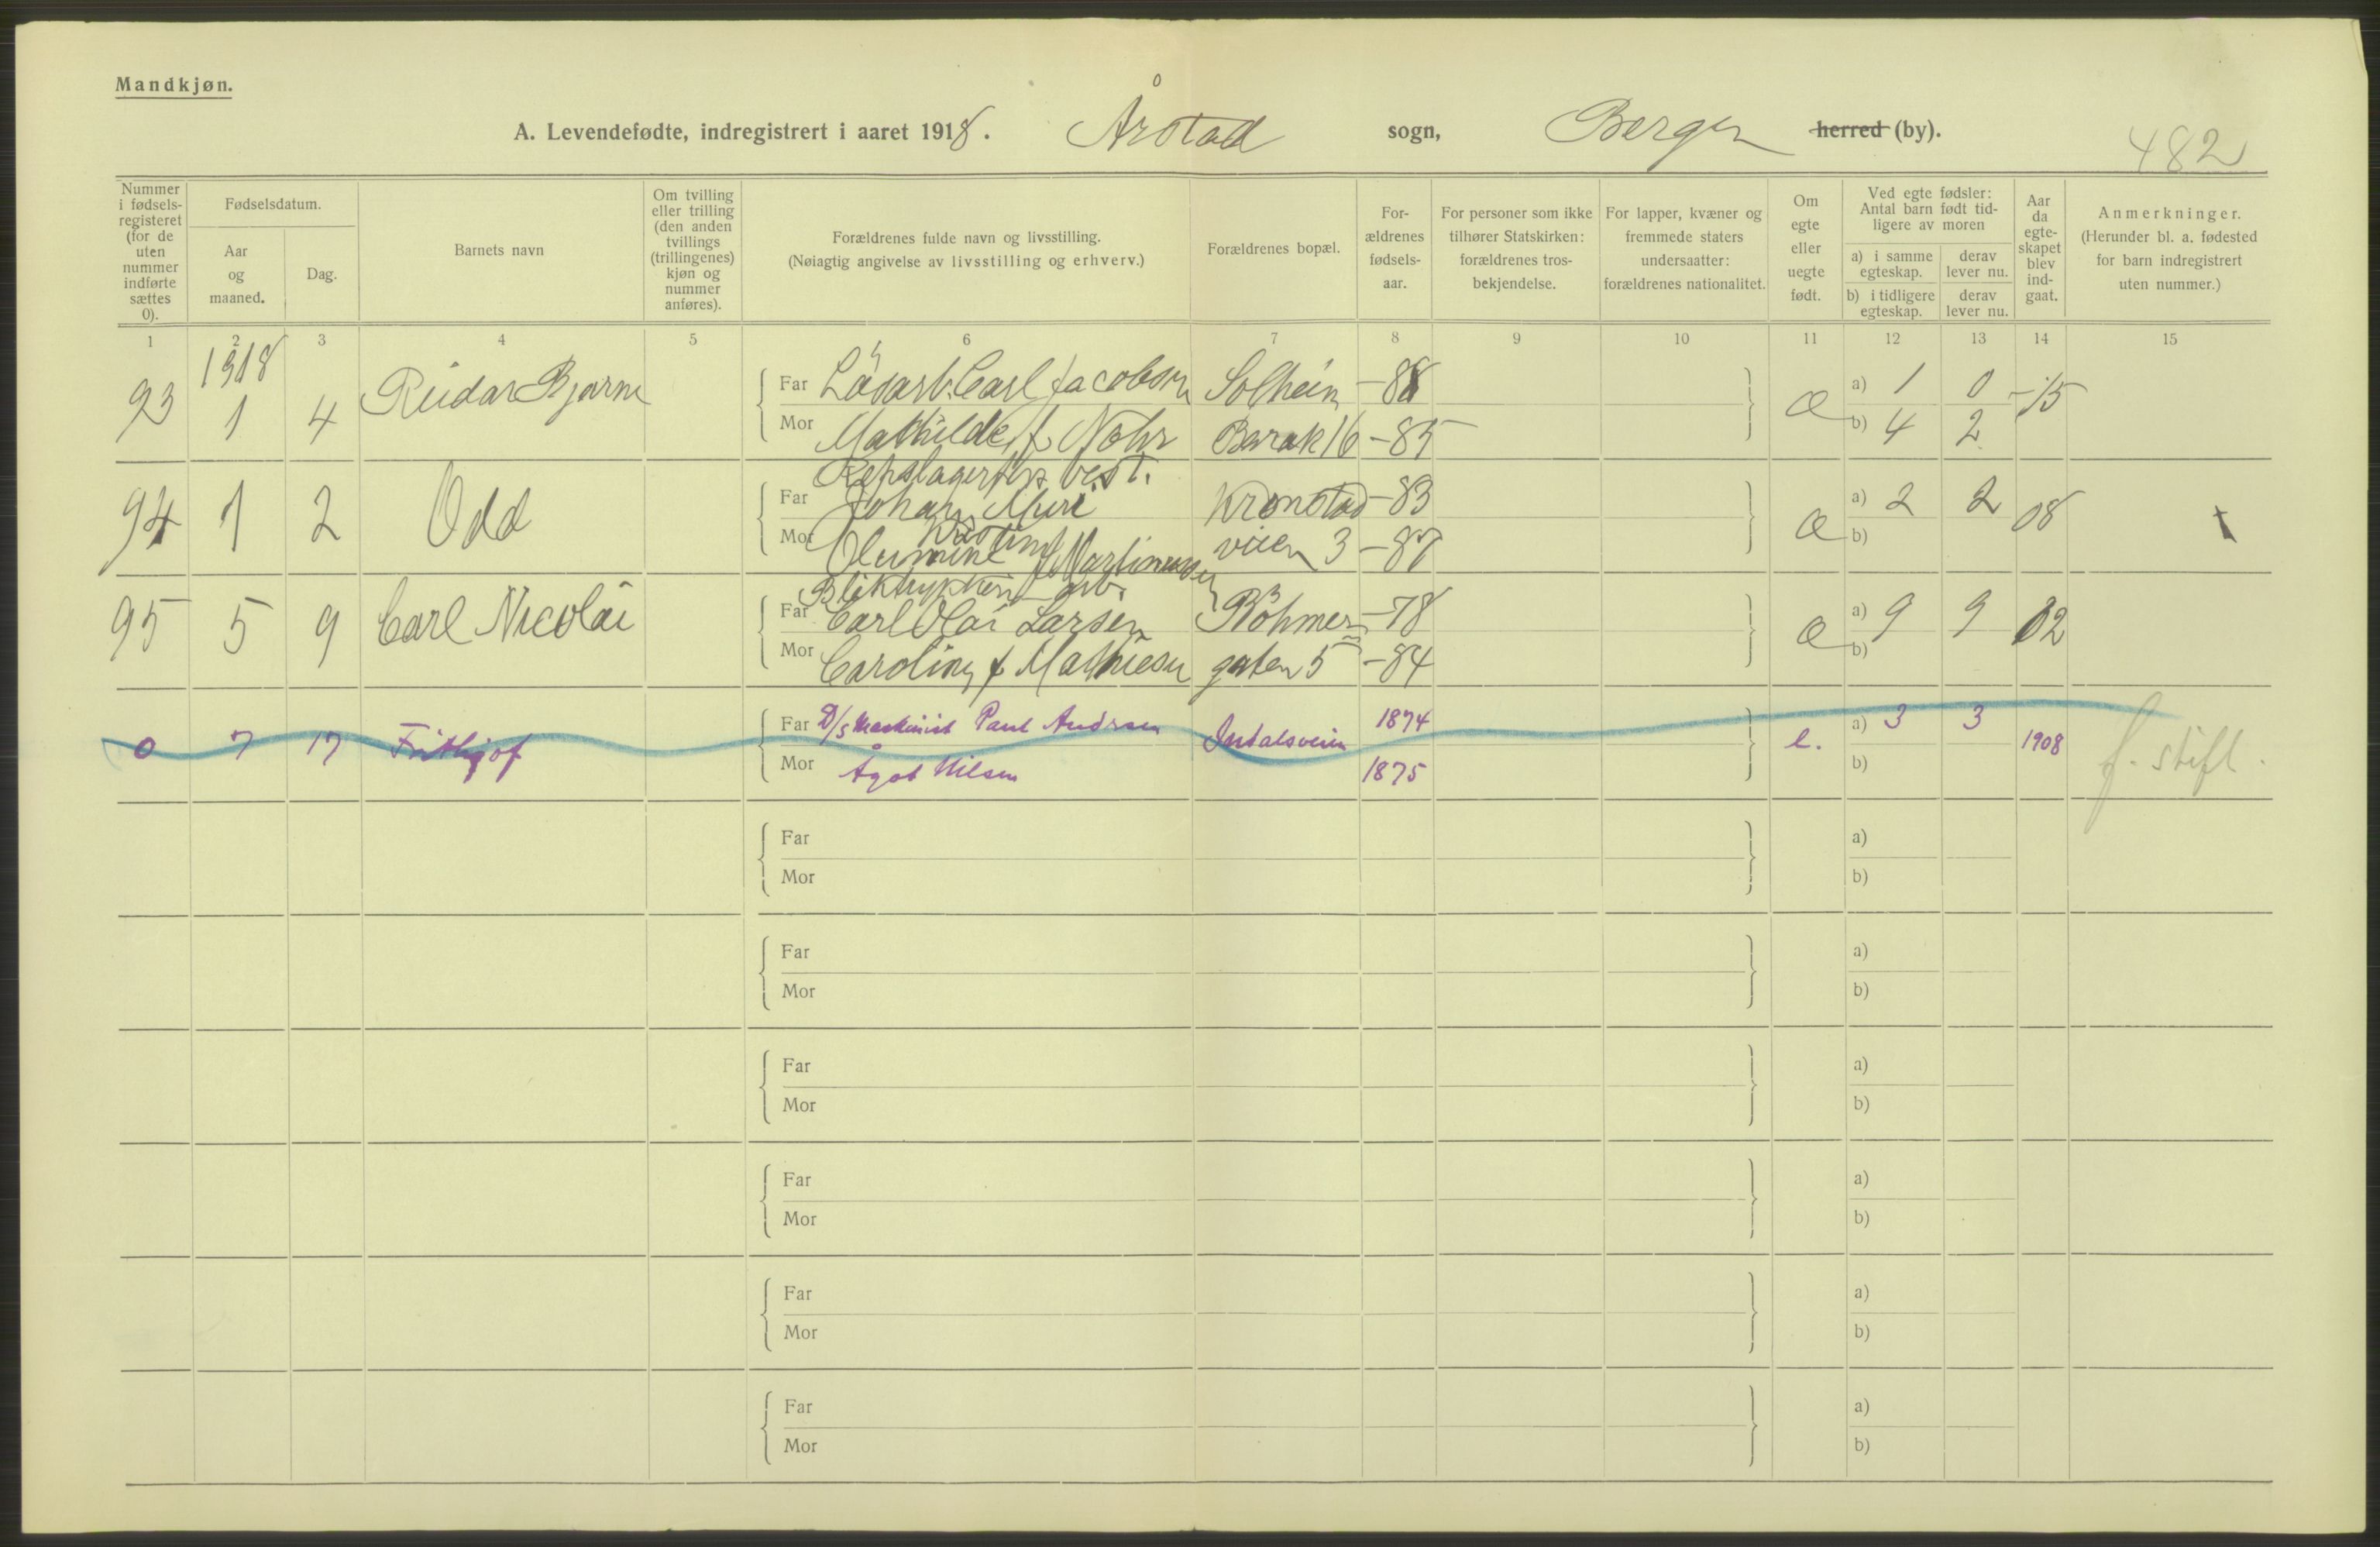 Mandkjøn.
A. Levendefødte, indregistrert i aaret 1918. Årstad sogn, Bergen herred (by).
482
Nummer i fødsels-registeret (for de uten nummer indførte sættes 0).
Fødselsdatum.
Aar og maaned.
Dag.
Barnets navn
Om tvilling eller trilling (den anden tvillings (trillingenes) kjøn og nummer anføres).
Forældrenes fulde navn og livsstilling.
(Nøiagtig angivelse av livsstilling og erhverv.)
Forældrenes bopæl.
For-ældrenes fødsels-aar.
For personer som ikke tilhører Statskirken: forældrenes tros-bekjendelse.
For lapper, kvæner og fremmede staters undersaatter: forældrenes nationalitet.
Om egte eller uegte født.
Ved egte fødsler: Antal barn født tid-ligere av moren
a) i samme egteskap. derav lever nu.
b) i tidligere egteskap. derav lever nu.
Aar da egte-skapet blev ind-gaat.
Anmerkninger.
(Herunder bl. a. fødested for barn indregistrert uten nummer.)
1 2 3 4 5 6 7 8 9 10 11 12 13 14 15
1918
93 1 4 Reidar Bjarne Far Løsarb. Carl Jacobsen Solheim -88 Æ a) 1 0 -15
Mor Mathilde f Nohr Barak 16 -85 b) 4 2
94 1 2 Odd best.
Far Johan Mure Kronstad -83 Æ a) 2 2 08
Kristine
Mor f Martinussen veien 3 -87 b)
95 5 9 Carl Nicolai Bliktrykkeri arb.
Far Carl Olai Larsen Böhmer -78 Æ a) 9 9 02
Mor Caroline f Mathiesen gaten 5 -84 b)
0 7 17 Frithjof Far D/s Maskinist Paul Andrsen Indalsveien 1874 e. a) 3 3 1908 f. stift.
Mor Ågot Nilsen 1875 b)
Far a)
Mor b)
Far a)
Mor b)
Far a)
Mor b)
Far a)
Mor b)
Far a)
Mor b)
Far a)
Mor b)